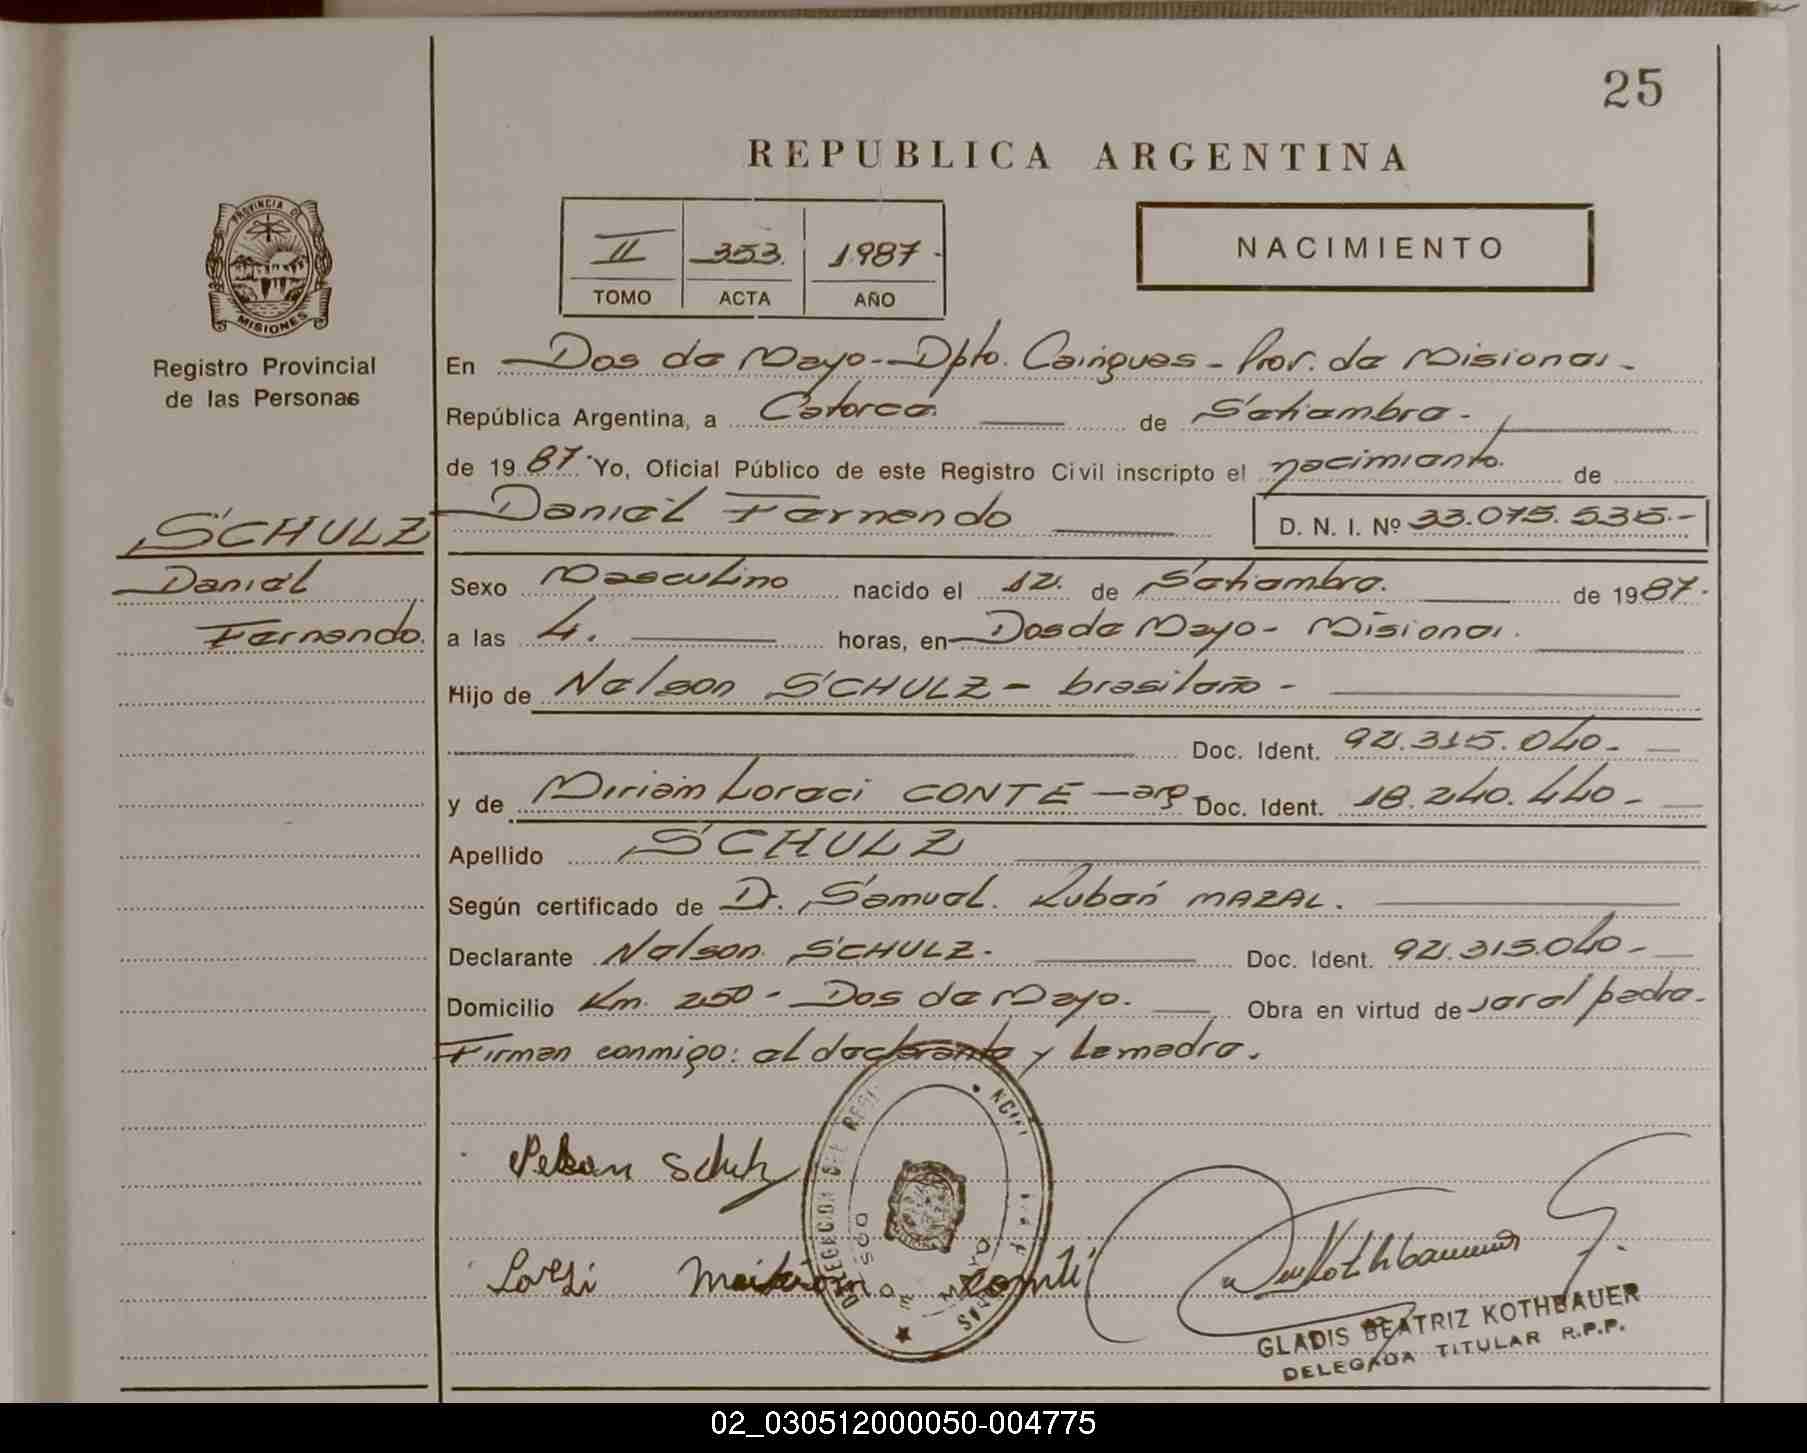 25
REPUBLICA ARGENTINA
PROVINCIA DE
MISIONES
Registro Provincial
de las Personas
II 353. 1987-
TOMO ACTA AÑO
NACIMIENTO
En Dos de Mayo- Dpto. Cainguas - Prov. de Misiones -
República Argentina, a Catorce de Setiembre -
de 1987. Yo, Oficial Público de este Registro Civil inscripto el nacimiento. de
Daniel Fernando D. N. I. Nº 33.075.535.-
SCHULZ
Daniel
Fernando.
Sexo Masculino nacido el 12. de Setiembre. de 1987.
a las 4. horas, en Dos de Mayo - Misiones.
Hijo de Nelson SCHULZ - brasileño -
Doc. Ident. 92.315.040.-
y de Miriam Loreci CONTE - arg. Doc. Ident. 18.240.440 -
Apellido SCHULZ
Según certificado de Dr. Samuel. Rubén MAZAL.
Declarante Nelson SCHULZ. Doc. Ident. 92.315.040 -
Domicilio Km. 250 - Dos de Mayo. Obra en virtud de ser el padre.
Firman conmigo: el declarante y la madre.
Nelson Schulz
DELEGACION DEL REGI
DOS DE MAYO
GLADIS BEATRIZ KOTHBAUER
DELEGADA TITULAR R.P.P.
02_030512000050-004775